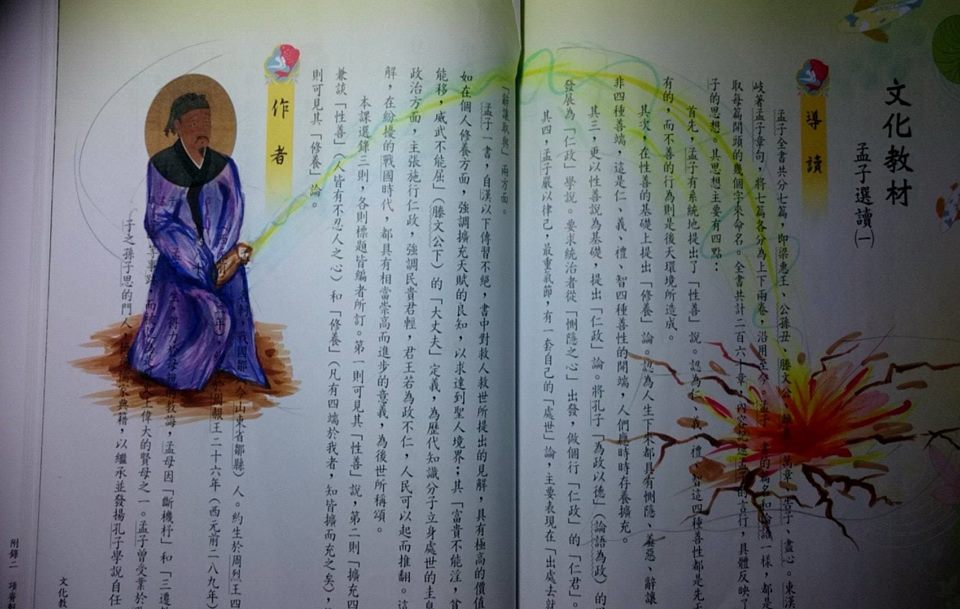 文化教材
孟子選讀㈠
導讀
孟子全書共分七篇，即梁惠王、公孫丑、滕文公、離婁、萬章、告子、盡心。東漢
岐著孟子章句，將七篇各分為上下兩卷，沿用至今。孟子一書的篇名和論語一樣，都是
取每篇開頭的幾個字來命名。全書共計二百六十章，內容記述孟子的言行，具體反映了
子的思想。其思想主要有四點：
首先，孟子有系統地提出了「性善」說。認為仁、義、禮、智這四種善性都是先天
有的，而不善的行為則是後天環境所造成。
其次，在性善的基礎上提出「修養」論。認為人生下來都具有惻隱、羞惡、辭讓
非四種善端，這是仁、義、禮、智四種善性的開端，人們應時時存養擴充。
其三，更以性善說為基礎，提出「仁政」論。將孔子「為政以德」（論語為政）的
發展為「仁政」學說。要求統治者從「惻隱之心」出發，做個行「仁政」的「仁君」。
其四，孟子嚴以律己，最重氣節，有一套自己的「處世」論，主要表現在「出處去就
「辭讓取與」兩方面。
孟子一書，自漢以下傳習不絕，書中對救人救世所提出的見解，具有極高的價值
如在個人修養方面，強調擴充天賦的良知，以求達到聖人境界；其「富貴不能淫，貧
能移，威武不能屈」（滕文公下）的「大丈夫」定義，為歷代知識分子立身處世的圭臬
政治方面，主張施行仁政，強調民貴君輕，君王若為政不仁，人民可以起而推翻。這
解，在紛擾的戰國時代，都具有相當崇高而進步的意義，為後世所稱頌。
本課選錄三則，各則標題皆編者所訂。第一則可見其「性善」說，第二則「擴充四
兼談「性善」（人皆有不忍人之心）和「修養」（凡有四端於我者，知皆擴而充之矣），
則可見其「修養」論。
作者
戰國鄒（今山東省鄒縣）人。約生於周烈王四
周赧王二十六年（西元前二八九年）
教誨，孟母因「斷機杼」和「三遷
偉大的賢母之一。孟子曾受業於
子之孫子思的門人，典籍，以繼承並發揚孔子學說自任
附錄二
文化教